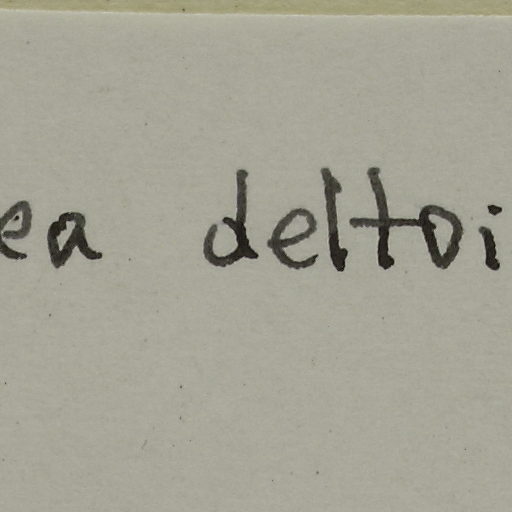 ea deltoi